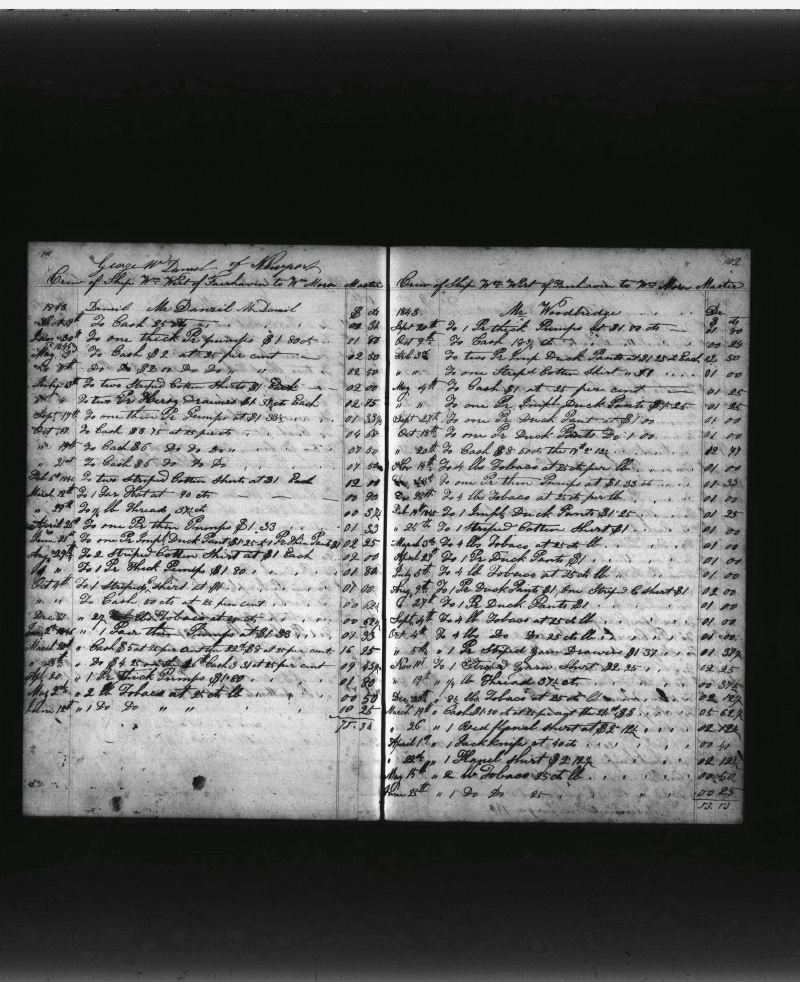 101
George W. Daniel of Newport
Crew of Ship Wm Wirt of Fairhaven to Wm Master
1843 Daniel Mr Daniel $ cts
To Cash 25 00 31
30th To one thick Pr pumps $1.80cts 01 80
May To Cash $2 at 25 per cent 02 50
Do Do $2 Do Do 02 50
To two Striped Cotten Shirts $1 Each 02 00
To two Pr Drawers $1 Each 02 15
Sept 17th To one thin Pr Pumps at $1 33⅓ 01 33⅓
Oct To Cash $3 75 at 25 pr cts 04
" 19th To Cash $6 Do Do 07 50
" 21st To Cash $6 Do Do Do 07 50
Feb To two Striped Cotten Shirts at $1 Each 02 00
March 12th To 1 Hat at 90 cts 00 90
" 29th To ½ lb Thread 37½ cts 00 37½
April 25th To one Pr thin Pumps $1.33 01 33
June 21st To one Pr Impl Duck Pant $1 25 & 1 Pr thin Pants $1 02 25
Aug 29th To 2 Striped Cotten Shirt at $1 Each 02 00
To 1 Pr Thick Pumps $1 80 01 80
Oct 4th To 1 Striped shirt at $1 01 00
" " To Cash 50 cts at 25 per cent 00 62½
Dec lb Tobaco at 25 cts 00 62½
" 1 Pair thin Pumps at $1 33 01 33
March " Cash $5 at 25 per cent the 22nd $8 at 25 per cent 16 25
" Do $4 25 on the 26th Cash 3 31 at 25 per cent 09 43¼
Apl 20 " 1 Pr Thick Pumps $1 80 01 80
May " 2 lb Tobaco at 25 ct lb 00 50
June " 1 Do Do " " 00 25
75.34
102
Crew of Ship Wm Wirt of Fairhaven to Wm Master
1843 Mr Woodbridge Dr
$ cts
Sept 20th To 1 Pr thick Pumps at $1 80 cts 01 80
Oct 9th To Cash 19½ cts 00 24
Feb To two Pr Impl Duck Pants at $1 25 ct Each 02 50
" " To one Striped Cotten Shirt " $1 01 00
May 4th To Cash $1 at 25 per cent 01 25
" " To one Pr Impl Duck Pants $1.25 01 25
Sept 27th To one Pr Duck Pant at $1 00 01 00
Oct 18th To one Pr Duck Pants Do 1 00 01 00
" 20th To Cash $8 50cts the 12 47
Nov 14th To 4 lb Tobaco at 25 cts per lb 01 00
To one Pr thin Pumps at $1 33 cts 01 33
Dec 28th To 4 lb Tobaco at 25 cts per lb 01 00
Feb To 1 Impl Duck Pants $1 25 01 25
" 25th To 1 Striped Cotten Shirt $1 01 00
March To 4 lb Tobaco at 25 cts lb 01 00
April 23 To 1 Pr Duck Pants $1 01 00
July 5th To 4 lb Tobaco at 25 cts lb 01 00
Aug 9th To 1 Pr Duck Pants $1, One Striped C. Shirt $1 02 00
" 27th To 1 Pr Duck Pants $1 01 00
Sept 4th To 4 lb Tobaco at 25 cts lb 01 00
Oct 4th To 4 lb Do Do 25 ct lb 01 00
" 5th " 1 Pr Striped yarn Drawers $1 37 01 37½
Nov To 1 Striped yarn Shirt $2 25 02 25
" 19th " ½ lb Thread 37½ cts 00 37½
Dec " 8½ lb Tobaco at 25 ct lb 02 12½
March 19th " Cash $1.50 ct at 25 per cent the 21st $3 05 62½
" 26 " 1 Red flanel shirt at $2 12½ 02 12½
April 1st " 1 Jack knife at 40 cts 00 40
" 22nd " 1 Flanel shirt $2 12½ 02 12½
May 15th " 2 lb Tobaco 25 ct lb 00 50
June 25th " 1 Do Do 25 00 25
53.13